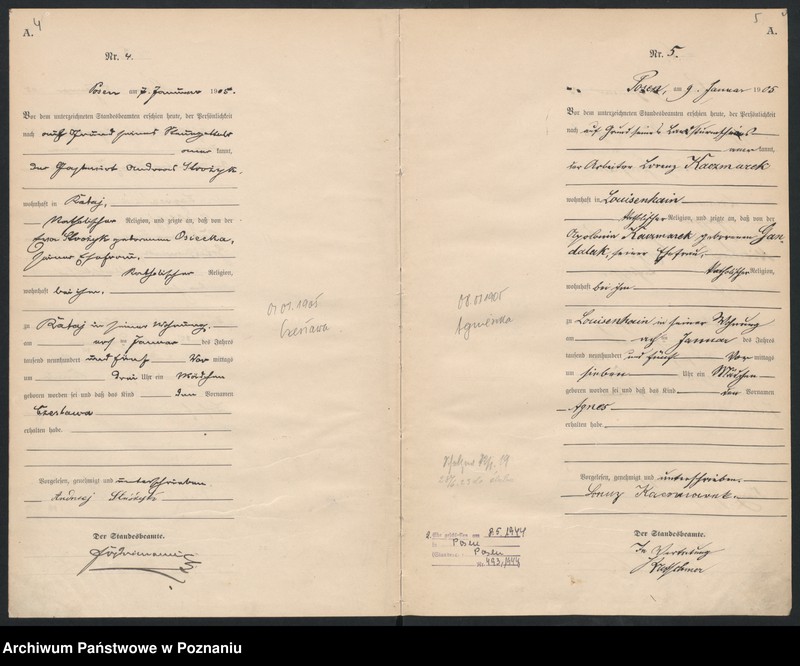 4
A.
Nr. 4.
Posen am 7. Januar 1905.
Vor dem unterzeichneten Standesbeamten erschien heute, der Persönlichkeit
nach auf Grund seines
kannt,
der Gastwirt Andreas Stróżyk,
wohnhaft in Kataj,
Katholischer Religion, und zeigte an, daß von der
Eva Stróżyk geborenen Osiecka,
seiner Ehefrau,
Katholischer Religion,
wohnhaft bei ihm,
zu Kataj in seiner Wohnung,
am Januar des Jahres
tausend neunhundert und fünf Vor mittags
um drei Uhr ein Mädchen
geboren worden sei und daß das Kind den Vornamen
Czesława
erhalten habe.
Vorgelesen, genehmigt und unterschrieben.
Andrzej Stróżyk
Der Standesbeamte.
01 01. 1905
Czesława
5
A.
Nr. 5.
Posen, am 9. Januar 1905
Vor dem unterzeichneten Standesbeamten erschien heute, der Persönlichkeit
nach auf Grund seines
kannt,
der Arbeiter Lorenz Kaczmarek
wohnhaft in Louisenhain
katholischer Religion, und zeigte an, daß von der
Apolonia Kaczmarek geborenen Gan-
dulak, seiner Ehefrau,
katholischer Religion,
wohnhaft bei ihm
zu Louisenhain in seiner Wohnung
am Januar des Jahres
tausend neunhundert und fünf Vor mittags
um sieben Uhr ein Mädchen
geboren worden sei und daß das Kind den Vornamen
Agnes
erhalten habe.
Vorgelesen, genehmigt und unterschrieben.
Lorenz Kaczmarek.
Der Standesbeamte.
In Vertretung
08. 01 1905
Agnieszka
am 8.5.1944
in Posen
Posen
Nr. 493/1944
Archiwum Państwowe w Poznaniu